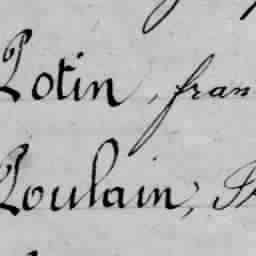 Potin, fran
Poulain,